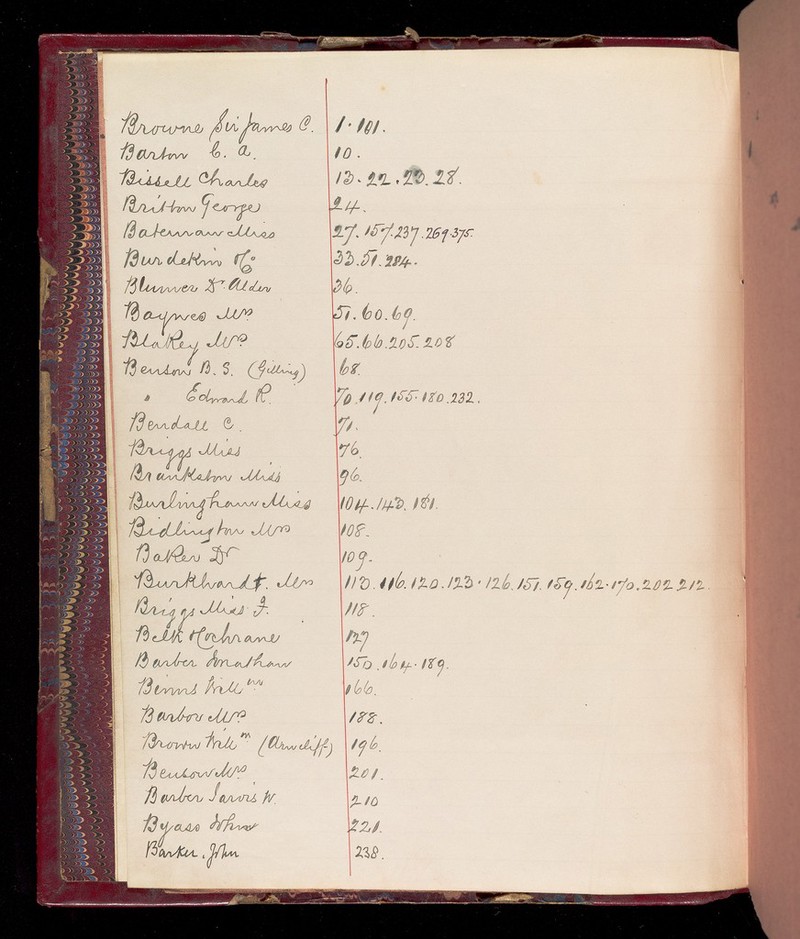 Browne Sir James C. 1. 101.
Barton C. A. 10.
Bissell Charles 13. 22. 23. 28.
Britton George 24.
Bateman Miss 27. 157. 237. 269. 375.
Burdekin & Co 33. 51. 284.
Blumer Dr Alder 36.
Baynes Mrs 51. 60. 69.
Blakey Mrs 65. 66. 205. 208
Benson B. S. (Gilling) 68.
" Edward R. 70. 119. 155. 180. 232.
Bendall C. 71.
Briggs Miss 76.
Brankston Miss 96.
Burlingham Miss 104. 143. 181.
Bidlington Mrs 108.
Baker Dr 109.
Burkhardt. Mrs 113. 116. 120. 123. 126. 151. 159. 162. 170. 202 212.
Briggs Miss F. 118.
Belk Cochrane 127
Barber Jonathan 150. 164. 189.
Binns Will m 166.
Barbor Mrs 188.
Brown Will m (Arncliff) 196.
Benson Mrs 201.
Barber Jarvis W. 210
Byass John 221.
Barker. John 238.